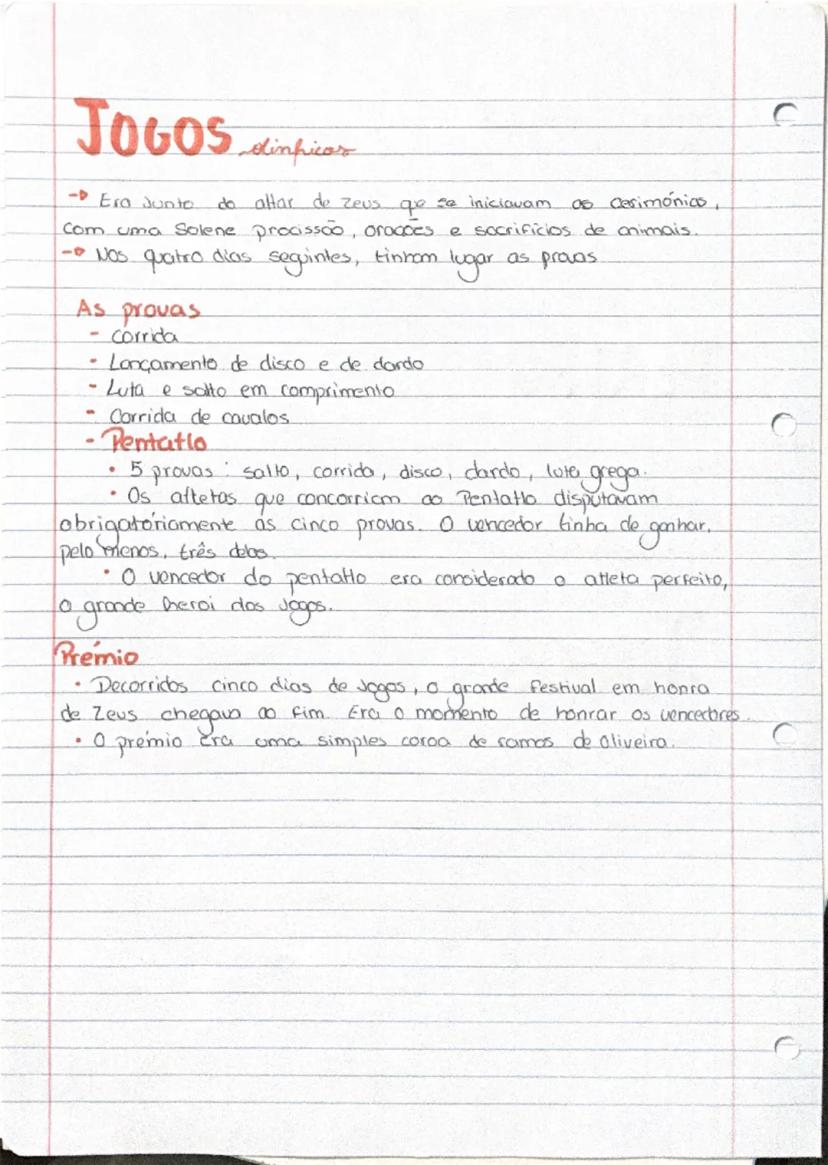 JOGOS olímpicos
→ Era Junto do altar de Zeus que se iniciavam as cerimónias,
com uma Solene procissão, orações e sacrifícios de animais.
→ Nos quatro dias seguintes, tinham lugar as provas
As provas
- Corrida
- Lançamento de disco e de dardo
- Luta e salto em comprimento
- Corrida de cavalos
- Pentatlo
• 5 provas : salto, corrida, disco, dardo, luta grega.
• Os atletas que concorriam ao Pentatlo disputavam
obrigatóriamente as cinco provas. O vencedor tinha de ganhar,
pelo menos, três delas.
• O vencedor do pentatlo era considerado o atleta perfeito,
o grande heroi dos Jogos.
Prémio
• Decorridos cinco dias de Jogos, o grande festival em honra
de Zeus chegava ao fim. Era o momento de honrar os vencedores.
• O prémio era uma simples coroa de ramos de Oliveira.